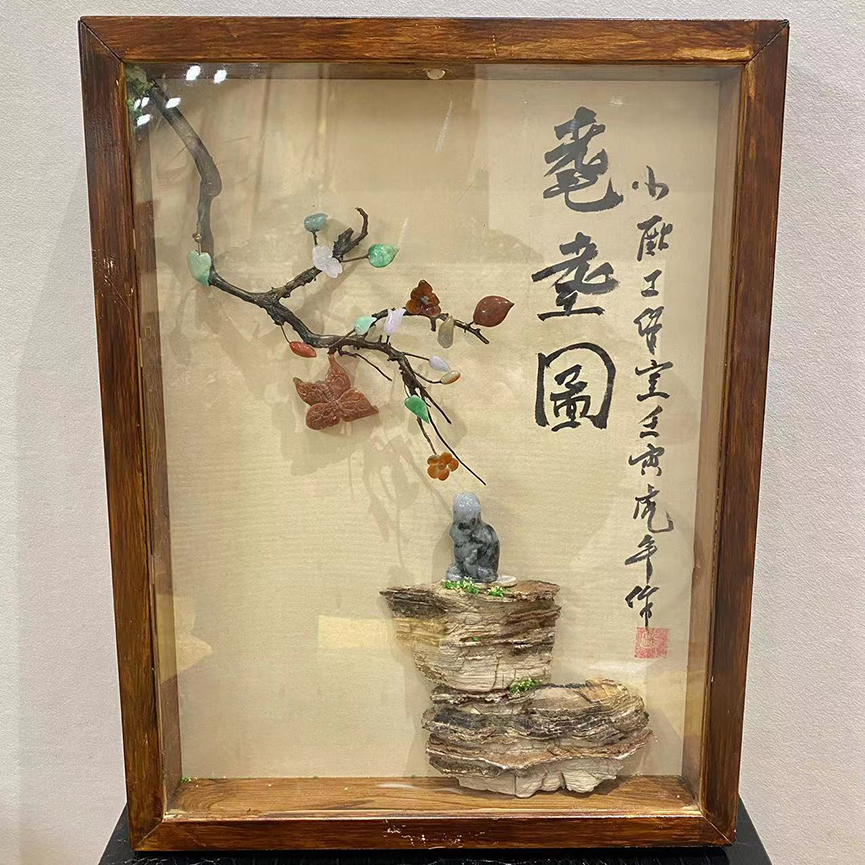 耄耋圖
小 工作室壬寅虎年作